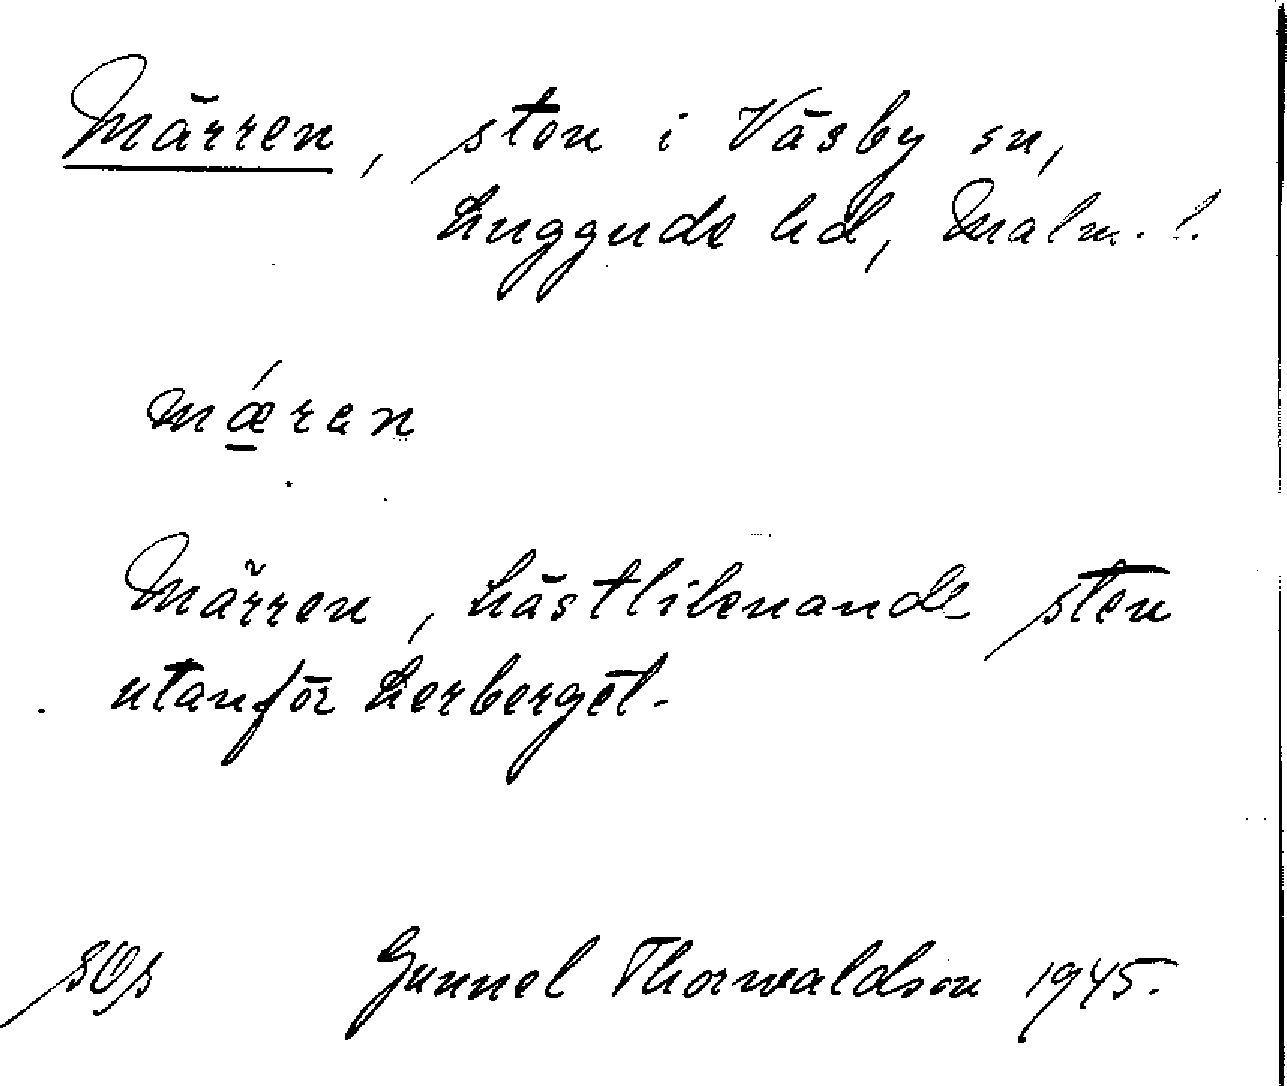 Märren, sten i Väsby sn,
Luggude hd, Malm. l.
mǽran
Märren, hästliknande sten
utanför Lerberget.
Gunnel Thorwaldson 1945.